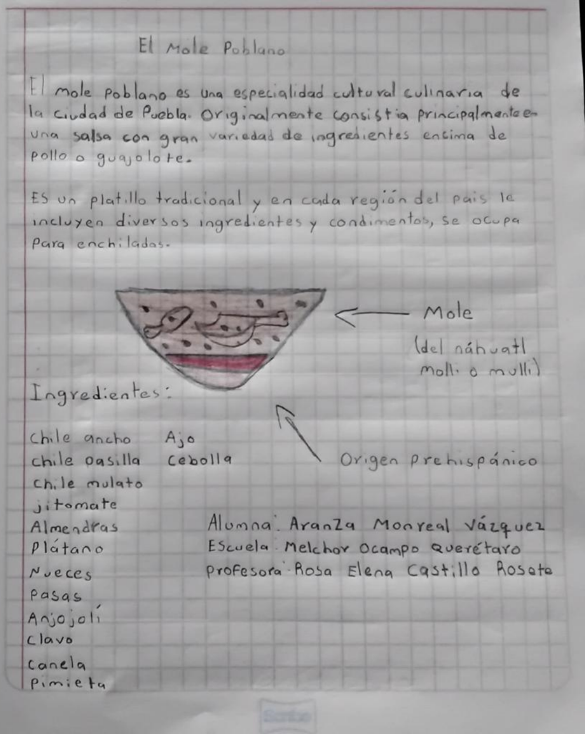 El Mole Poblano
El mole poblano es una especialidad cultural culinaria de
la ciudad de Puebla. Originalmente consistia principalmente en
una salsa con gran variedad de ingredientes encima de
pollo o guajolote.
Es un platillo tradicional y en cada región del pais le
incluyen diversos ingredientes y condimentos, se ocupa
para enchiladas.
Mole
(del náhuatl
molli o mulli)
Origen prehispánico
Ingredientes:
chile ancho Ajo
chile pasilla Cebolla
chile mulato
jitomate
Almendras
Plátano
Nueces
Pasas
Anjojolí
Clavo
Canela
Pimieta
Alumna: Aranza Monreal Vázquez
Escuela: Melchor Ocampo Querétaro
Profesora: Rosa Elena Castillo Rosete
Scribe